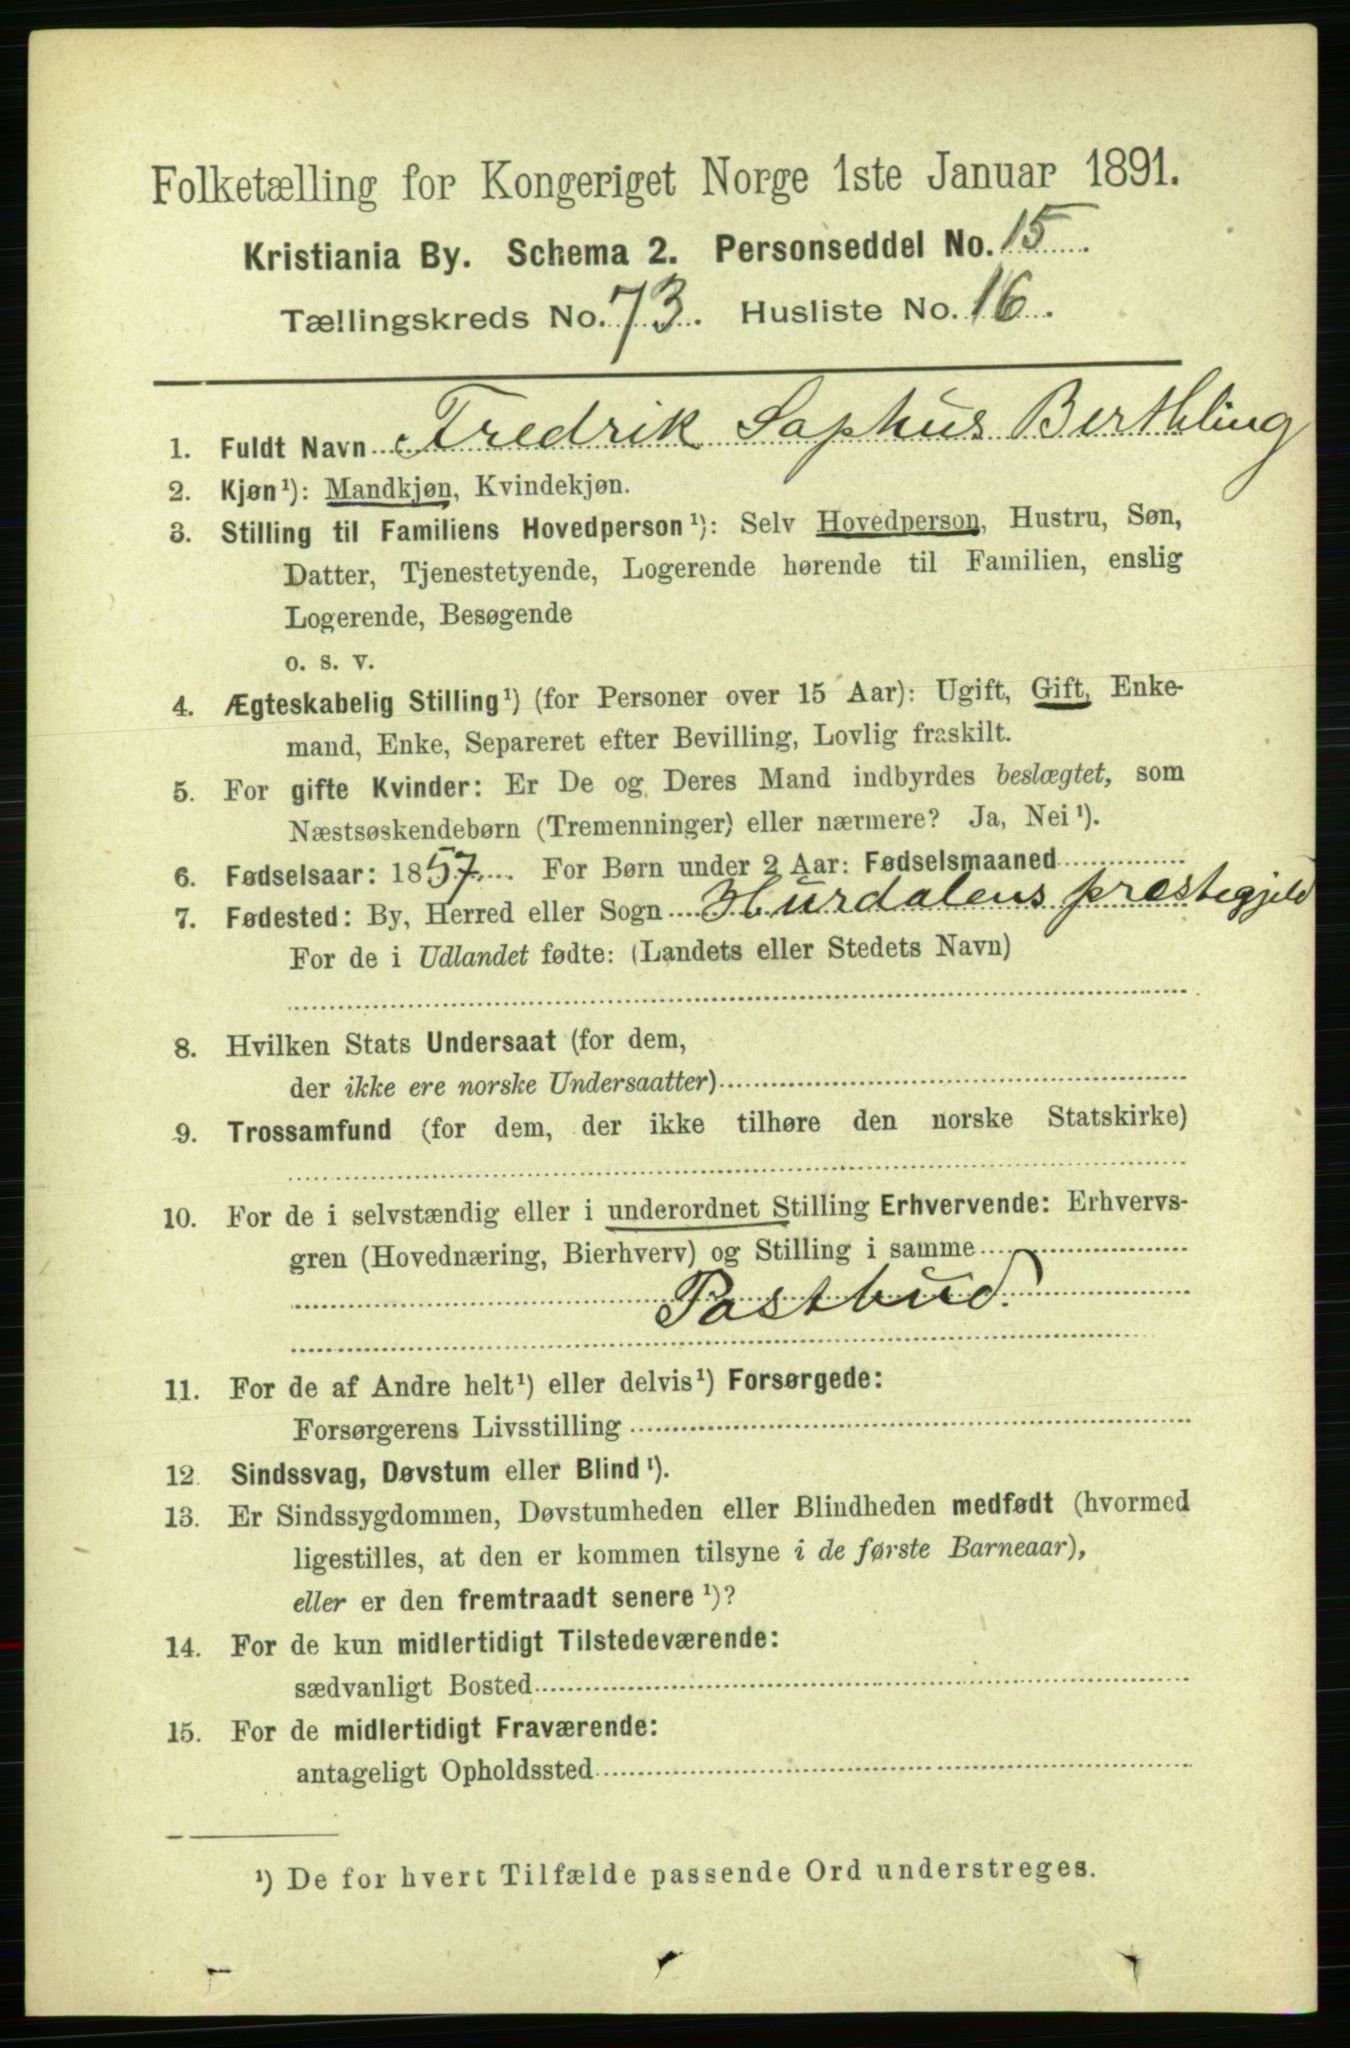 Folketælling for Kongeriget Norge 1ste Januar 1891.
Kristiania By. Schema 2. Personseddel No. 15
Tællingskreds No. 73. Husliste No. 16.
1. Fuldt Navn Fredrik Sophus Berthling
2. Kjøn¹): Mandkjøn, Kvindekjøn.
3. Stilling til Familiens Hovedperson¹): Selv Hovedperson, Hustru, Søn,
Datter, Tjenestetyende, Logerende hørende til Familien, enslig
Logerende, Besøgende
o. s. v.
4. Ægteskabelig Stilling¹) (for Personer over 15 Aar): Ugift, Gift, Enke-
mand, Enke, Separeret efter Bevilling, Lovlig fraskilt.
5. For gifte Kvinder: Er De og Deres Mand indbyrdes beslægtet, som
Næstsøskendebørn (Tremenninger) eller nærmere? Ja, Nei¹).
6. Fødselsaar: 1857. For Børn under 2 Aar: Fødselsmaaned
7. Fødested: By, Herred eller Sogn Hurdalens prestegjeld
For de i Udlandet fødte: (Landets eller Stedets Navn)
8. Hvilken Stats Undersaat (for dem,
der ikke ere norske Undersaatter)
9. Trossamfund (for dem, der ikke tilhøre den norske Statskirke)
10. For de i selvstændig eller i underordnet Stilling Erhvervende: Erhvervs-
gren (Hovednæring, Bierhverv) og Stilling i samme
Postbud.
11. For de af Andre helt¹) eller delvis¹) Forsørgede:
Forsørgerens Livsstilling
12. Sindssvag, Døvstum eller Blind¹).
13. Er Sindssygdommen, Døvstumheden eller Blindheden medfødt (hvormed
ligestilles, at den er kommen tilsyne i de første Barneaar),
eller er den fremtraadt senere¹)?
14. For de kun midlertidigt Tilstedeværende:
sædvanligt Bosted
15. For de midlertidigt Fraværende:
antageligt Opholdssted
¹) De for hvert Tilfælde passende Ord understreges.